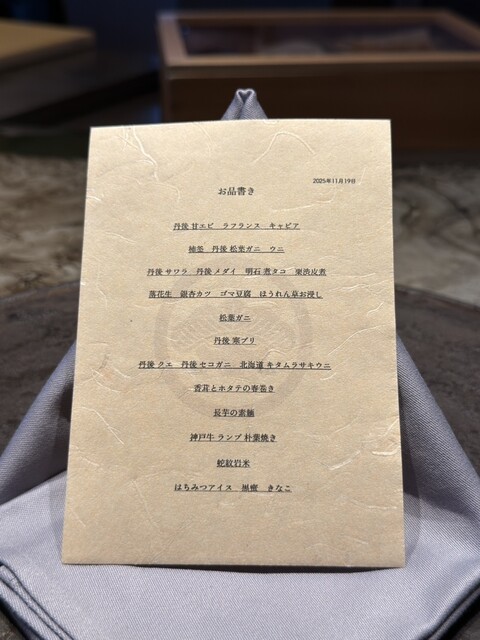 2025年11月19日
お品書き
丹後 甘エビ ラフランス キャビア
柚釜 丹後 松葉ガニ ウニ
丹後 サワラ 丹後 メダイ 明石 煮タコ 栗渋皮煮
落花生 銀杏カツ ゴマ豆腐 ほうれん草お浸し
松葉ガニ
丹後 寒ブリ
丹後 クエ 丹後 セコガニ 北海道 キタムラサキウニ
香茸とホタテの春巻き
長芋の素麺
神戸牛 ランプ 朴葉焼き
蛇紋岩米
はちみつアイス 黒蜜 きなこ